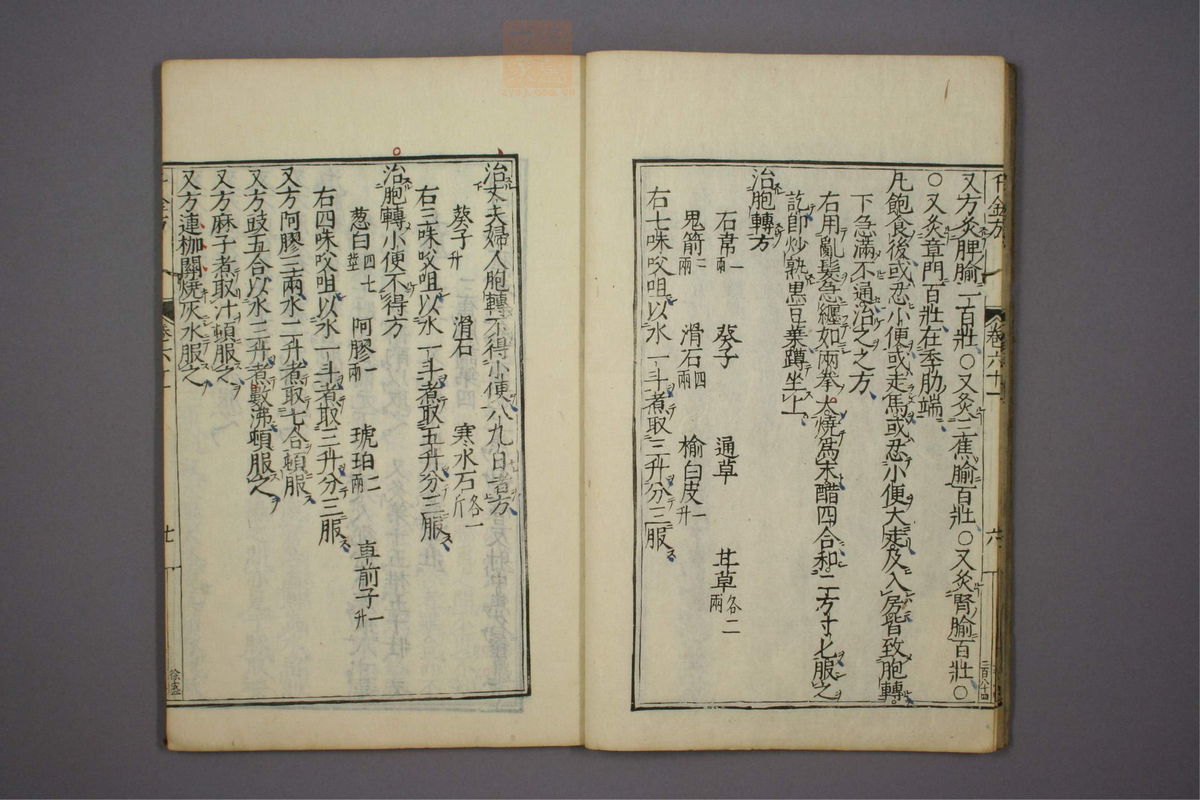 千金方
卷六十一
六
二百八十四
又方灸脾腧一百壯○又灸三焦腧百壯○又灸腎腧百壯○
○又灸章門百壯在季肋端
凡飽食後或忍小便或走馬或忍小便大走及入房皆致胞轉
下急滿不通治之之方
右用亂髮急纏如兩拳大燒爲末醋四合和二方寸匕服之
訖即炒熟黑豆葉蹲坐上
治胞轉方
石韋一兩 葵子 通草 甘草各二兩
鬼箭二兩 滑石四兩 榆白皮一升
右七味㕮咀以水一斗煮取三升分三服
治丈夫婦人胞轉不得小便八九日者方
葵子升 滑石 寒水石各一斤
右三味㕮咀以水一斗煮取五升分三服
治胞轉小便不得方
葱白四七莖 阿膠一兩 琥珀二兩 車前子一升
右四味㕮咀以水一斗煮取三升分三服
又方阿膠三兩水二升煮取七合頓服
又方豉五合以水三升煮數沸頓服之
又方麻子煮取汁頓服之
又方連枷關燒灰水服之
千金方
卷六十一
七